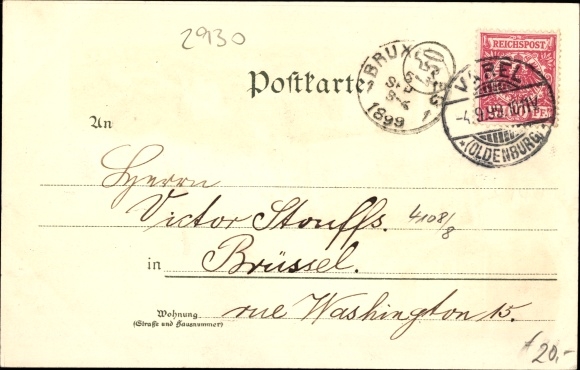 2930
REICHSPOST
BRUX
1899
VAREL
-4.9.99.
*(OLDENBURG)*
Postkarte
An
Herrn
Victor Stouffs. 4108/8
in Brüssel.
Wohnung
(Straße und Hausnummer)
rue Washington 15.
20,-